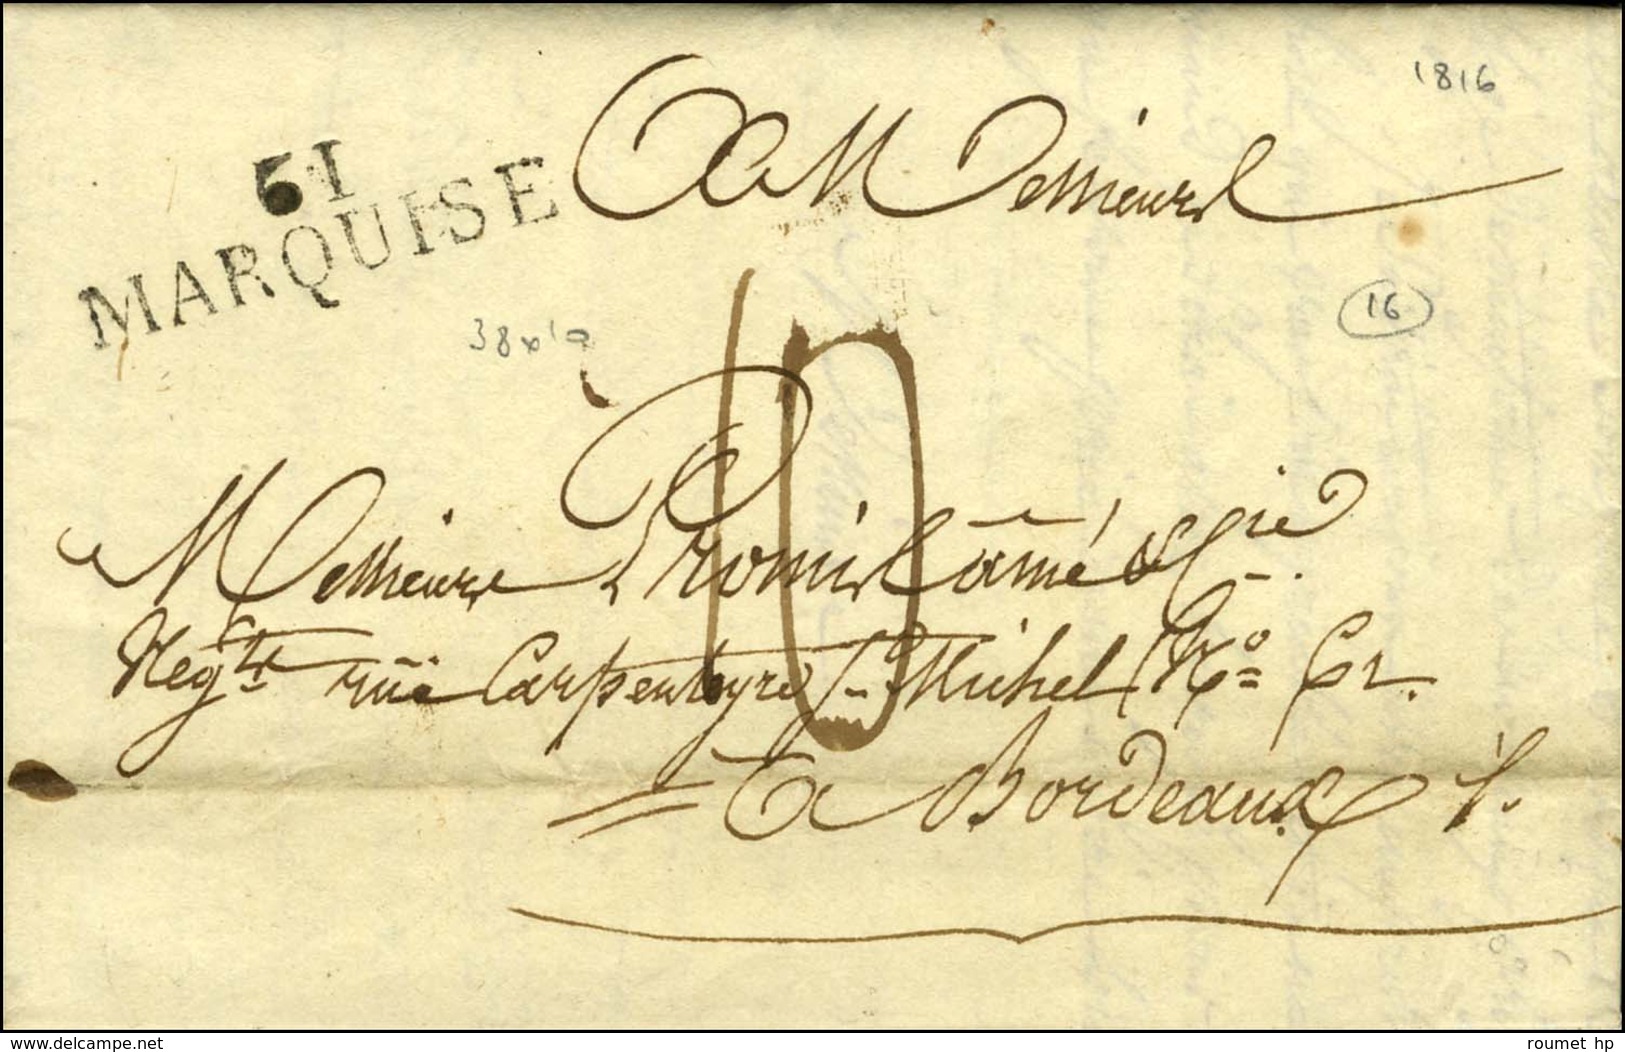 1816
61
MARQUISE
A Messieurs
16
38x19
10
Messieurs Promis l'ainé & Cie.
Negts. rue Carpenteyre St. Michel No. 62.
A Bordeaux
www.delcampe.net
roumet hp